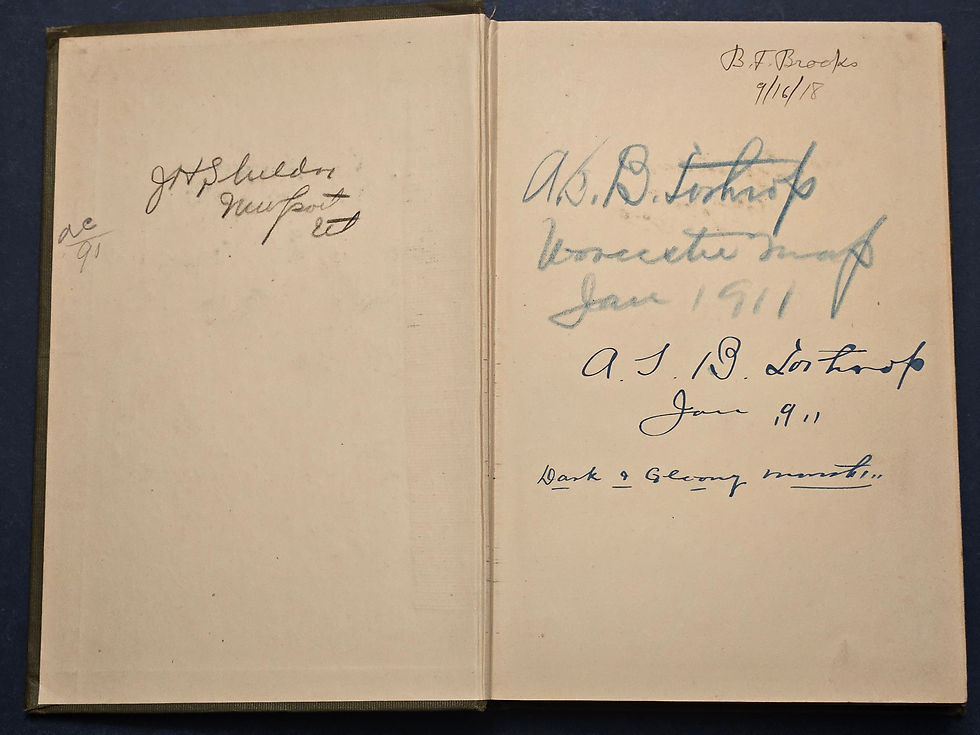 J H Sheldon
Newport
Vt
ac
91
B. F. Brooks
9/16/18
A. S. B. Lothrop
Worcester Mass
Jan 1911
A. S. B. Lothrop
Jan 1911
Dark & Gloomy month!!